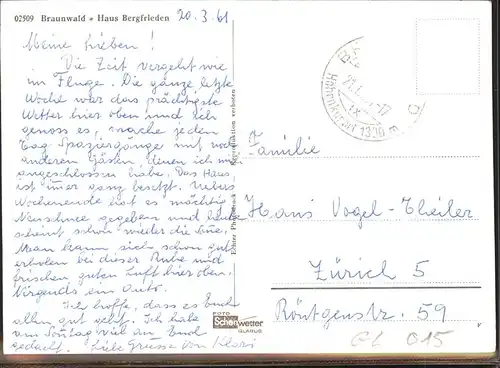 02509 Braunwald • Haus Bergfrieden
20.3.61
Meine Lieben!
Die Zeit vergeht wie
im Fluge. Die ganze letzte
Woche war das prächtigste
Wetter hier oben und ich
genoss es, mache jeden
Tag Spaziergänge mit noch
anderen Gästen, denen ich mich
angeschlossen habe. Das Haus
ist immer ganz besetzt. Uebers
Wochenende hat es mächtig
Neuschnee gegeben und heute
scheint schon wieder die Sonne.
Man kann sich schon gut
erholen bei dieser Ruhe und
frischen guten Luft hier oben.
Nirgends ein Auto.
Ich hoffe, dass es Euch
allen gut geht. Ich habe
am Sonntag viel an Euch
gedacht. Liebe Grüsse von
Echter Photodruck
Reproduktion verboten
FOTO
Schönwetter
GLARUS
Höhenluftkurort 1300
Familie
Hans Vogel-Theiler
Zürich 5
Röntgenstr. 59
GL 015